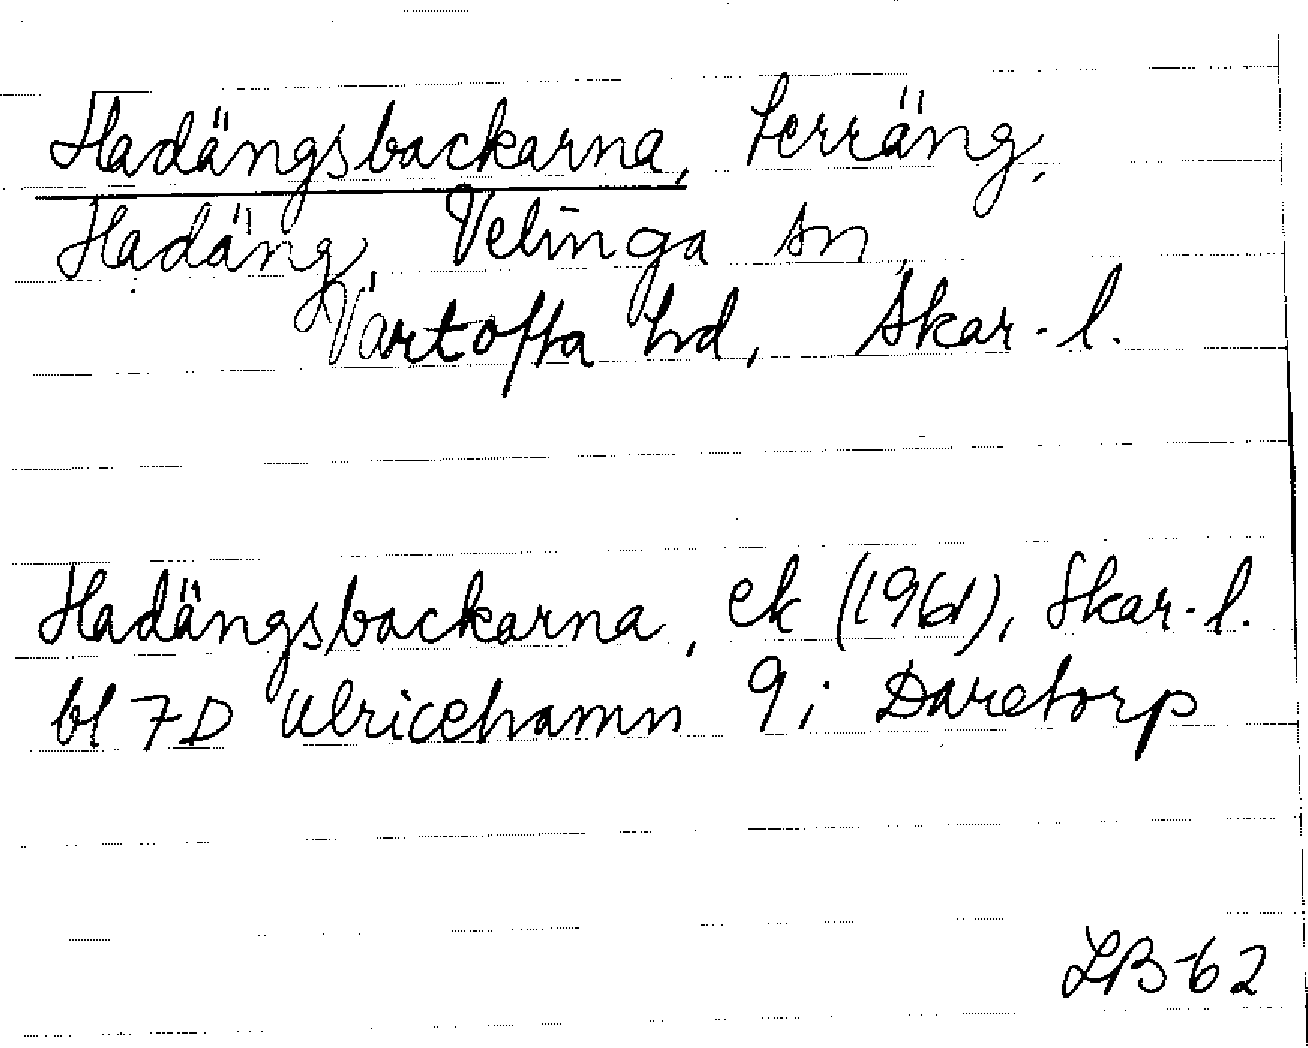 Hadängsbackarna, terräng,
Hadäng, Velinga sn,
Vartofta hd, Skar. l.
Hadängsbackarna, ek (1961), Skar. l.
bl 7D Ulricehamn 9i Daretorp
LB-62